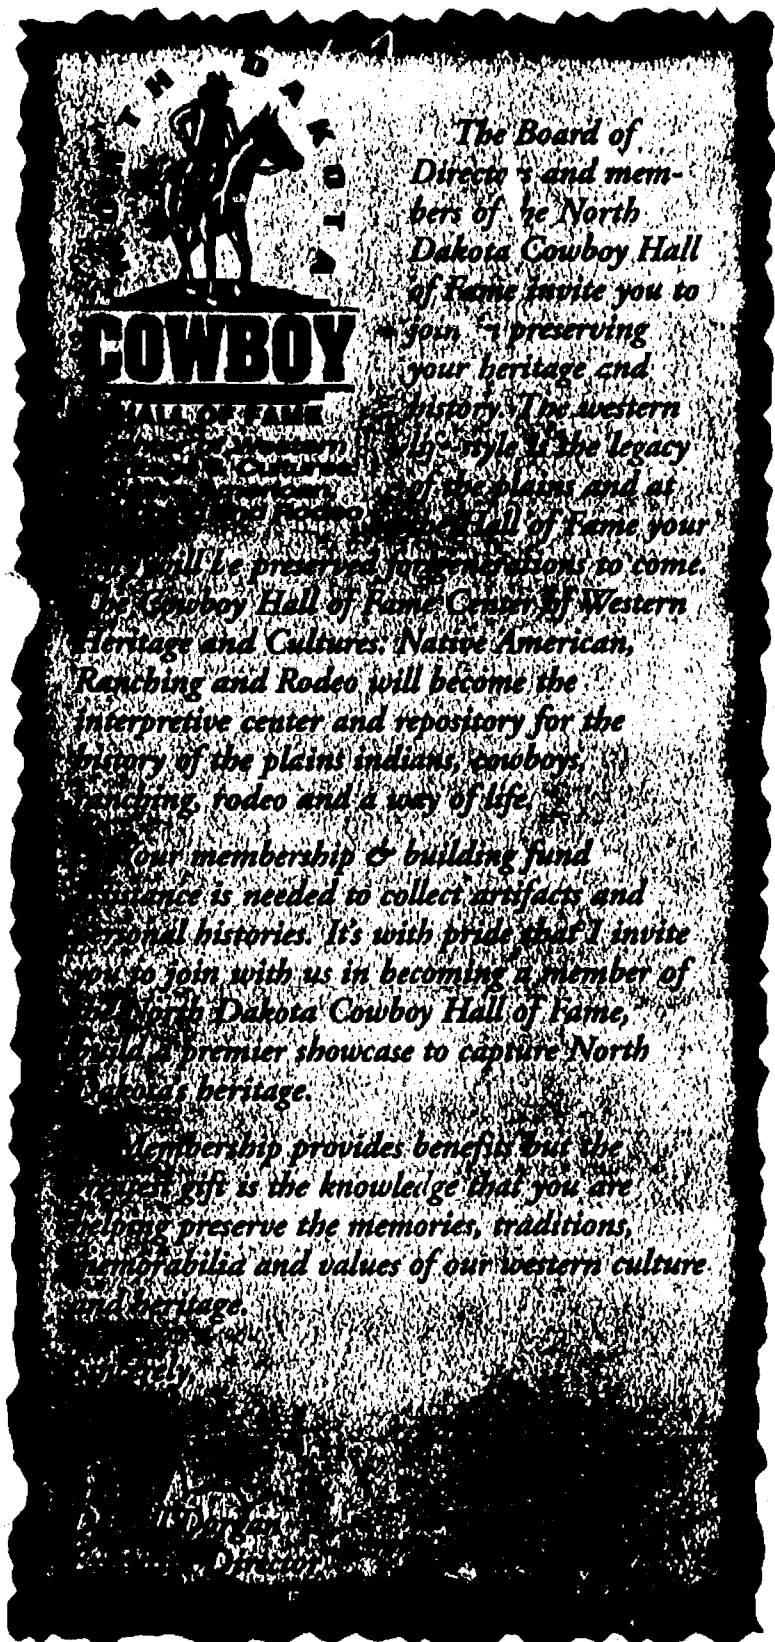 NORTH DAKOTA
COWBOY
HALL OF FAME
The Board of
Directors and mem-
bers of the North
Dakota Cowboy Hall
of Fame invite you to
join in preserving
your heritage and
history. The western
life-style is the legacy
of the plains and at
the Hall of Fame your
will be preserved for generations to come.
The Cowboy Hall of Fame Center of Western
Heritage and Cultures. Native American,
Ranching and Rodeo will become the
interpretive center and repository for the
history of the plains indians, cowboys,
ranching, rodeo and a way of life.
Your membership & building fund
assistance is needed to collect artifacts and
personal histories. It's with pride that I invite
you to join with us in becoming a member of
the North Dakota Cowboy Hall of Fame,
build a premier showcase to capture North
Dakota's heritage.
Membership provides benefits but the
greatest gift is the knowledge that you are
helping preserve the memories, traditions,
memorabilia and values of our western culture
and heritage.
Sincerely,
Director